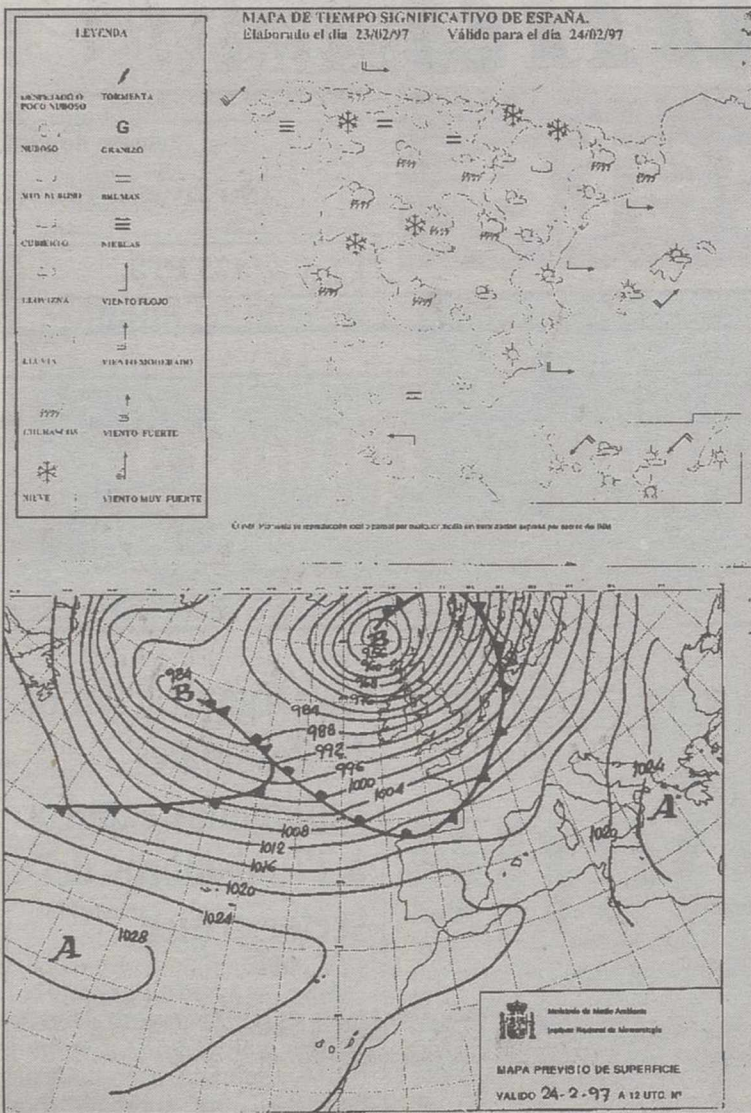 MAPA DE TIEMPO SIGNIFICATIVO DE ESPAÑA.
Elaborado el día 23/02/97 Válido para el día 24/02/97
LEYENDA
DESPEJADO O
POCO NUBOSO
TORMENTA
NUBOSO
G
GRANIZO
MUY NUBOSO
BRUMAS
CUBIERTO
NIEBLAS
LLOVIZNA
VIENTO FLOJO
LLUVIA
VIENTO MODERADO
CHUBASCOS
VIENTO FUERTE
NIEVE
VIENTO MUY FUERTE
B
968
976
984
B
984
988
992
996
1000
1004
1008
1012
1016
1020
1024
A
1028
1024
A
1020
Ministerio de Medio Ambiente
Instituto Nacional de Meteorología
MAPA PREVISTO DE SUPERFICIE
VALIDO 24-2-97 A 12 UTC. Nº